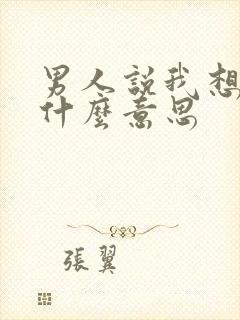 男人說我想
什麼意思
張翼